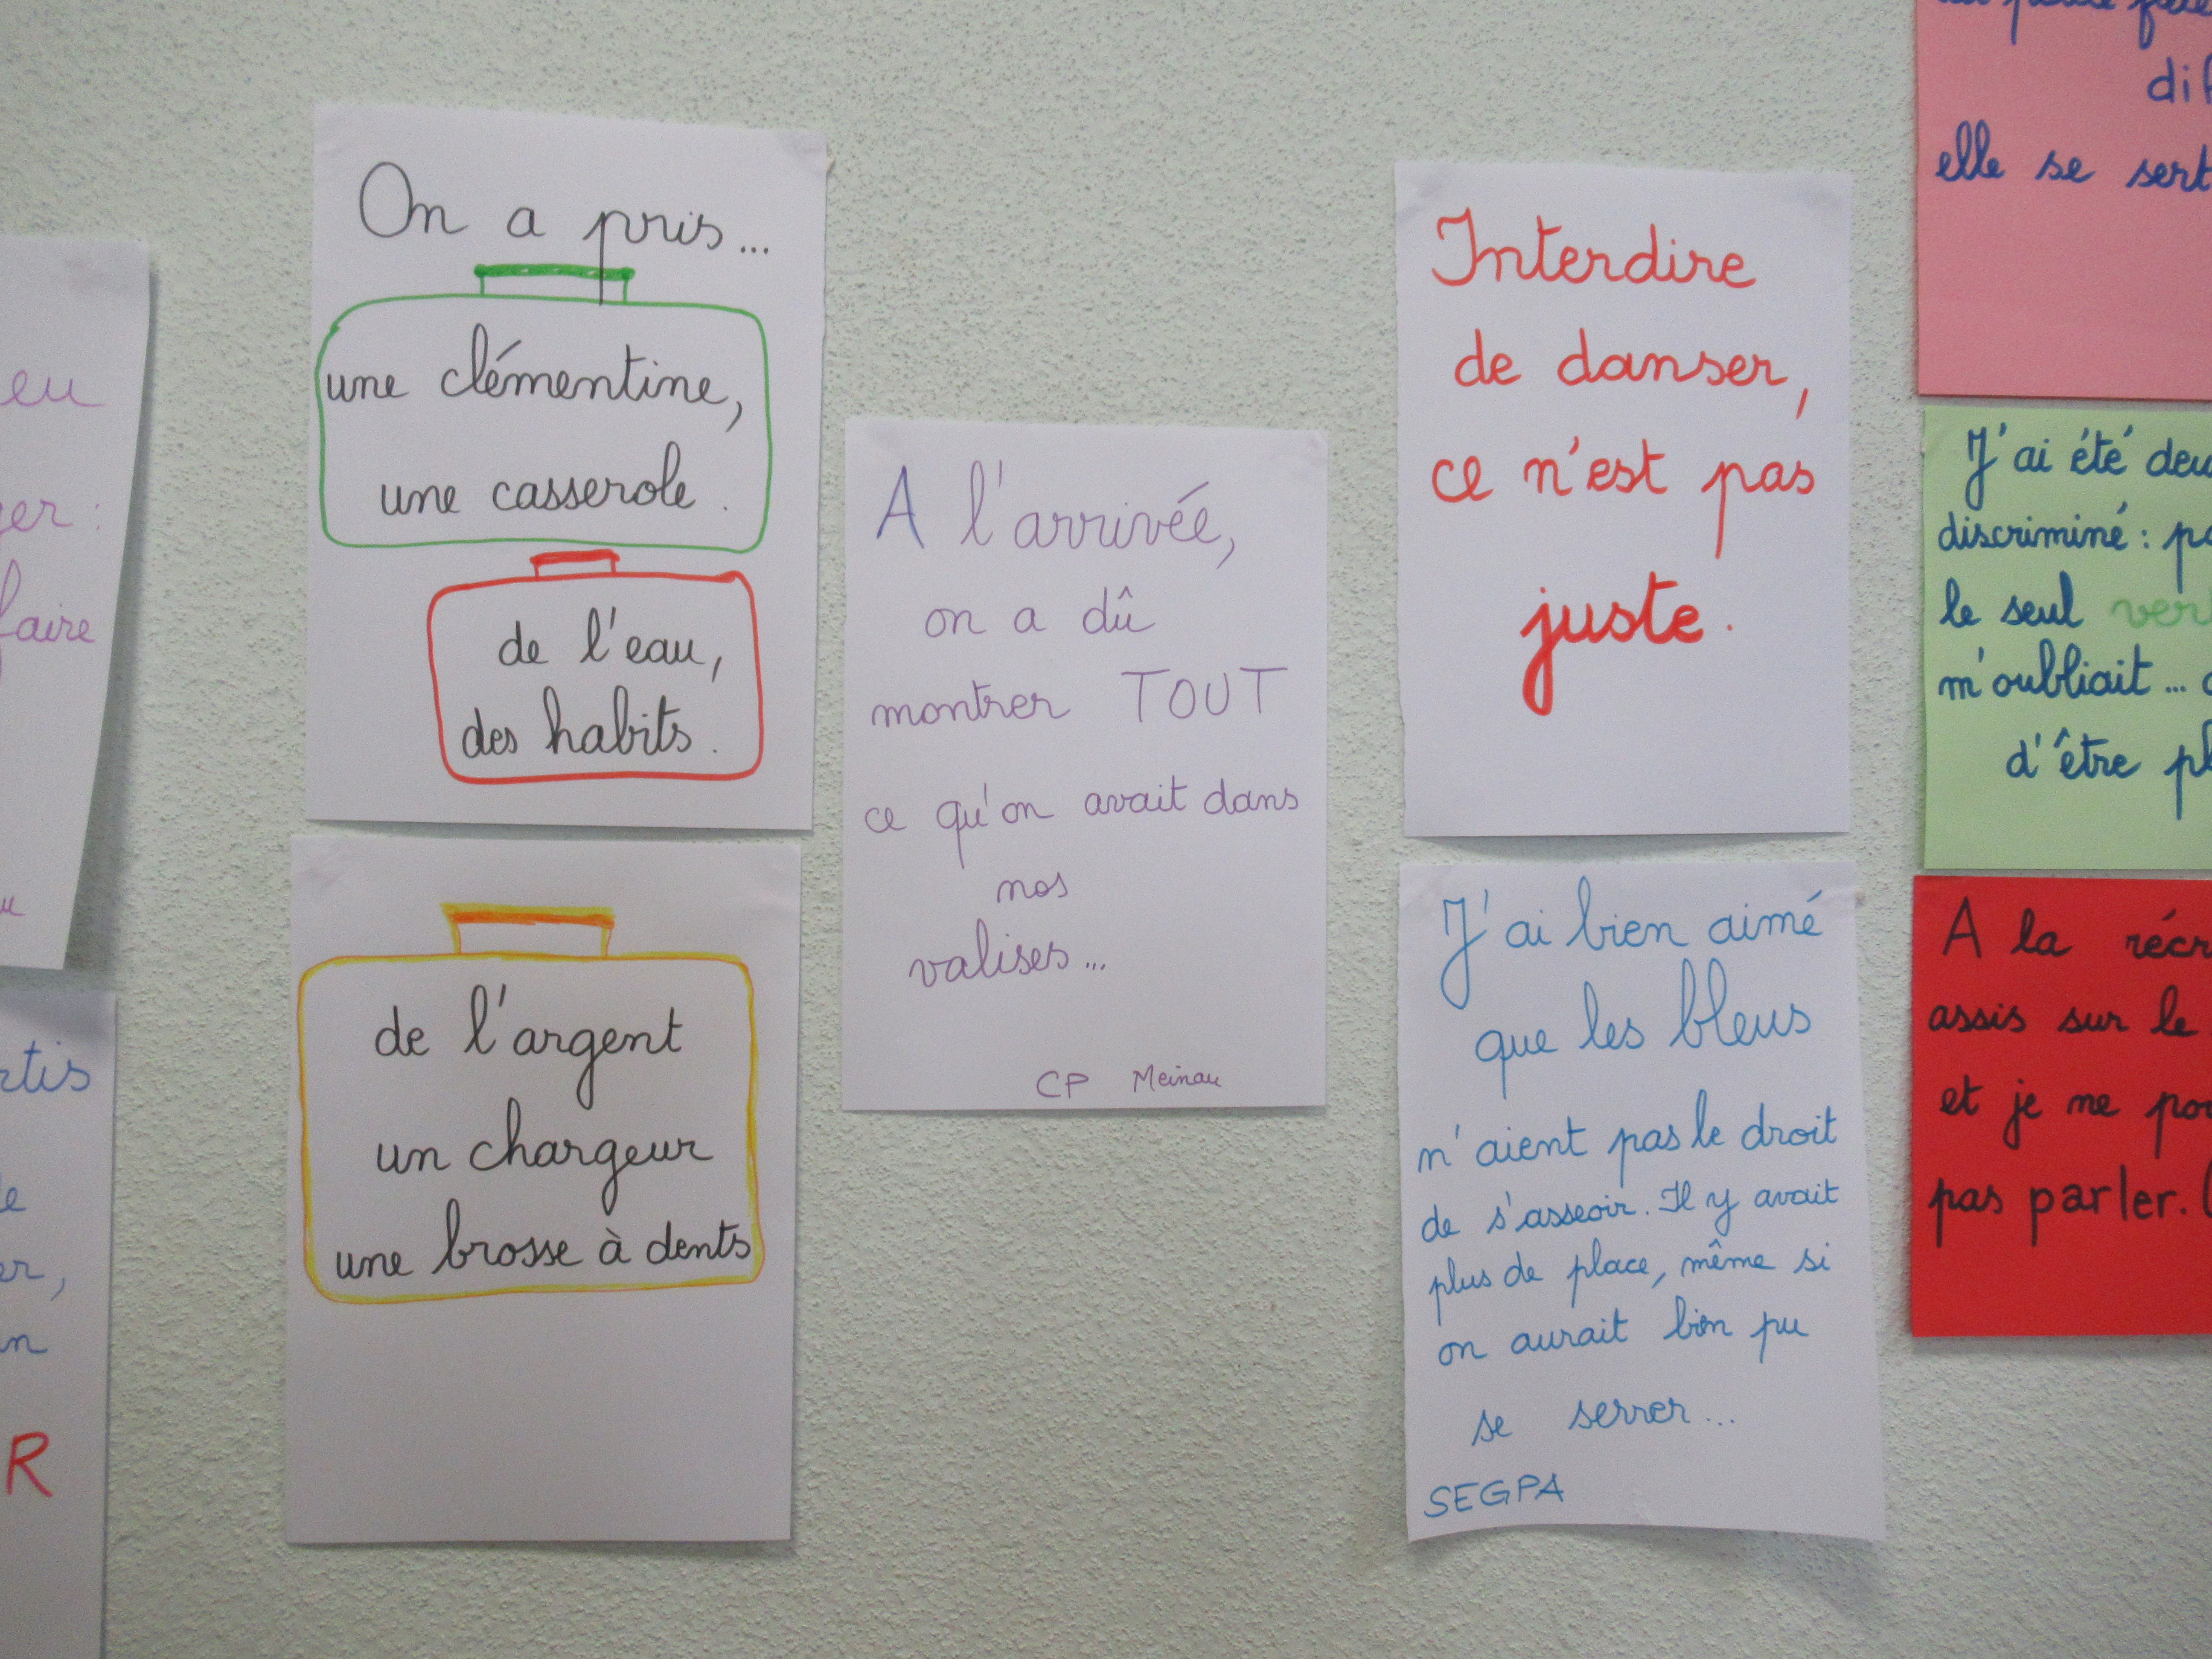 eu
faire
R
On a pris...
une clémentine,
une casserole.
de l'eau,
des habits.
de l'argent
un chargeur
une brosse à dents
A l'arrivée,
on a dû
montrer TOUT
ce qu'on avait dans
nos
valises...
CP Meinau
Interdire
de danser,
ce n'est pas
juste.
J'ai bien aimé
que les bleus
n'aient pas le droit
de s'asseoir. Il y avait
plus de place, même si
on aurait bien pu
se serrer...
SEGPA
elle se sert
J'ai été
discriminé :
le seul
m'oubliait...
d'être
A la
assis sur le
et je me
pas parler.